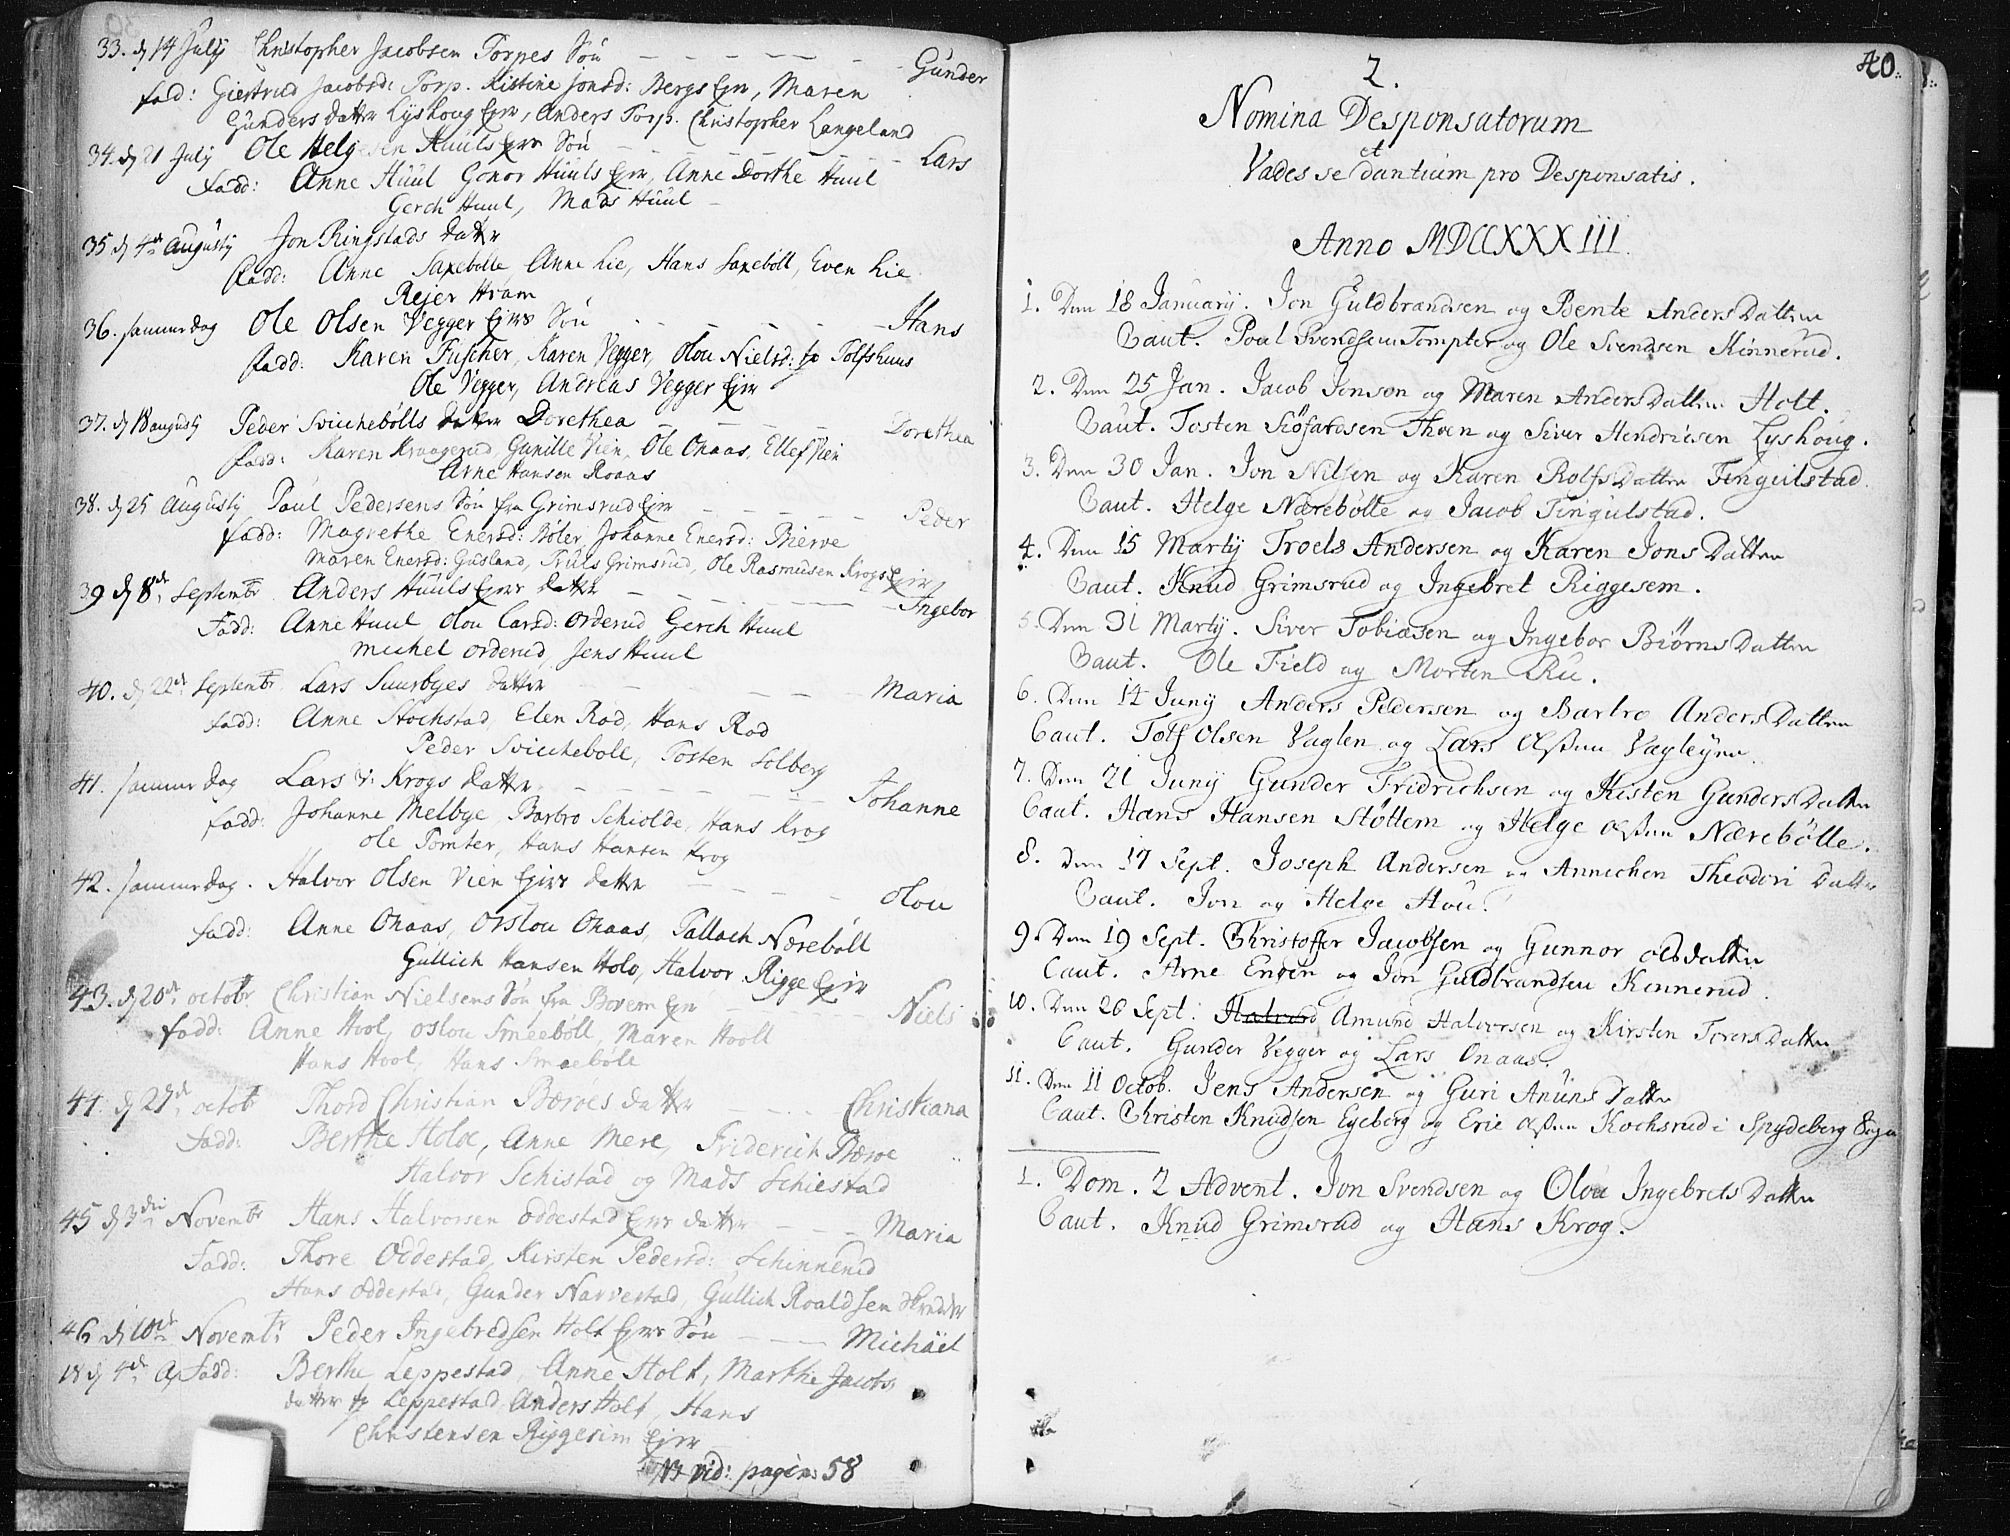 33. d 14 July Christopher Jacobsen Torpes Søn Gunder
fad: Giertrud Jacobsd: Torp. Kistine Jonsd: Bergs Ejer, Maren
Gunders datter Lyshoug Ejer, Anders Torp. Christopher Langeland
34. d 21 July Ole Helgesen Huuls Ejer Søn Lars
fadd: Anne Huul Gonor Huuls Ejer, Anne Dorthe Huul
Gerch Huul, Mads Huul
35 d 4de Augusty Jon Ringstads datter
fadd: Anne Saxebølle Anne Lie, Hans Saxebøll, Even Lie
Rejer Hvam
36. samme dag Ole Olsen Vegger Ejers Søn Hans
fadd: Karen Fuscher, Karen Vegger, Olou Nielsd: fr Tolfshuus
Ole Vegger, Andreas Vegger Ejer
37. d 18 augusty Peder Svicchebølls datter Dorethea Dorethea
fadd: Karen Kraagerud, Gunille Vien, Ole Onaas, Ellef Vien
Arne Hansen Roaas
38. d 25 Augusty Paul Pedersens Søn fra Grimsrud Ejer Peder
fadd: Magrethe Enersd: Bøler, Johanne Enersd: Bierve
Maren Enersd: Gusland, Truls Grimsrud, Ole Rasmusen Krogs Ejer
39 d 8de Septembr Anders Huuls Ejers datter Ingebor
Fadd: Anne Huul Olou Larsd: Orderud Gerch Huul
Michel Orderud, Jens Huul
40. d 22de Septembr Lars Suurbyes datter Maria
fadd: Anne Stochstad, Elen Rod, Hans Rod
Peder Svicchebøll, Tosten Solberg
41. samme dag Lars i Krogs datter Johanne
fadd: Johanne Melbye, Barbro Schiolde, Hans Krog
Ole Tomter, Hans Hansen Krog
42. samme dag. Halvor Olsen Vien Ejers datter Olou
fadd: Anne Onaas, Orslou Onaas, Tallach Nærebøll
Gullich Hansen Holo, Halvor Rigge Ejer
43. d 20de octobr Christian Nielsens Søn fra Bovem Ejer Niels
fadd: Anne Hool, oslou Smeebøll, Maren Hooll
Hans Hool, Hans Smeebøle
44. d 27de octobr Thord Christian Bærøes datter Christiana
Fadd: Berthe Holøe, Anne Mere, Friderich Bærøe
Halvor Schistad og Mads Schiestad
45 d 3die Novembr Hans Halvorsen oddestad Ejers datter Maria
Fadd: Thore Oddestad, Kirsten Pedersd: Schinnerud
Hans Oddestad, Gunder Narvestad, Gullich Roaldsen
46 d 10de Novembr Peder Ingebredsen Holt Ejers Søn Michael
18 d 4de Ap Fadd: Berthe Leppestad, Anne Holt, Marthe Jacobs
datter fr Leppestad Anders Holt, Hans
Christensen Riggesim Ejer
NB vid: pagin: 58
40.
2.
Nomina Desponsatorum
et
Vades se dantium pro Desponsatis.
Anno MDCCXXXIII.
1. Den 18 January. Jon Guldbrandsen og Bente Anders Datter
Caut. Poul Svendsen Tompter og Ole Svendsen Kinnerud.
2. Den 25 Jan. Jacob Jenson og Maren Anders Datter Holt.
Caut. Tosten Siøfardsen Thoen og Siver Hendricsen Lyshoug.
3. Den 30 Jan. Jon Nilsen og Karen Rolfs Datter Tingulstad.
Caut. Helge Nærebølle og Jacob Tingulstad.
4. Den 15 Marty Troels Andersen og Karen Jons Datter
Caut. Knud Grimsrud og Ingebret Riggesem.
5. Den 31 Marty. Siver Tobiæsen og Ingebor Biørns Datter
Caut. Ole Field og Morten Ru.
6. Den 14 Juny Anders Pedersen og Barbro Anders Datter
Caut. Tolf Olsen Vaglen og Lars Olssen Vagleyen
7. Den 21 Juny Gunder Fridrichsen og Kisten Gunders Datter
Caut. Hans Hansen Støttem og Helge Olssen Nærebølle.
8. Den 17 Sept. Joseph Andersen og Annichen Theodori Datter
Caut. Jon og Helge Hou.
9. Den 19 Sept. Christoffer Jacobsen og Gunnor Olsdatter
Caut. Arne Engen og Jon Guldbrandsen Kinnerud.
10. Den 26 Sept: Halvord Amund Halvorsen og Kirsten Torers Datter
Caut. Gunder Vegger og Lars Onaas.
11. Den 11 Octob. Jens Andersen og Guri Anuns Datter
Caut. Christen Knudsen Egeberg og Eric Olssen Kochsrud i Spydeberg Sogn
1. Dom. 2 Advent. Jon Svendsen og Olou Ingebrets Datter
Caut. Knud Grimsrud og Hans Krog.